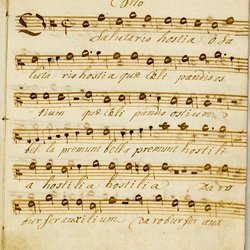 Alto
Salutaris hostia O Sa
luta ris hostia quæ cœli pandis os
tium quæ cœli pandis ostium
bella premunt hostili
a hostilia hostilia Da ro
bur fer auxilium da robur fer aux